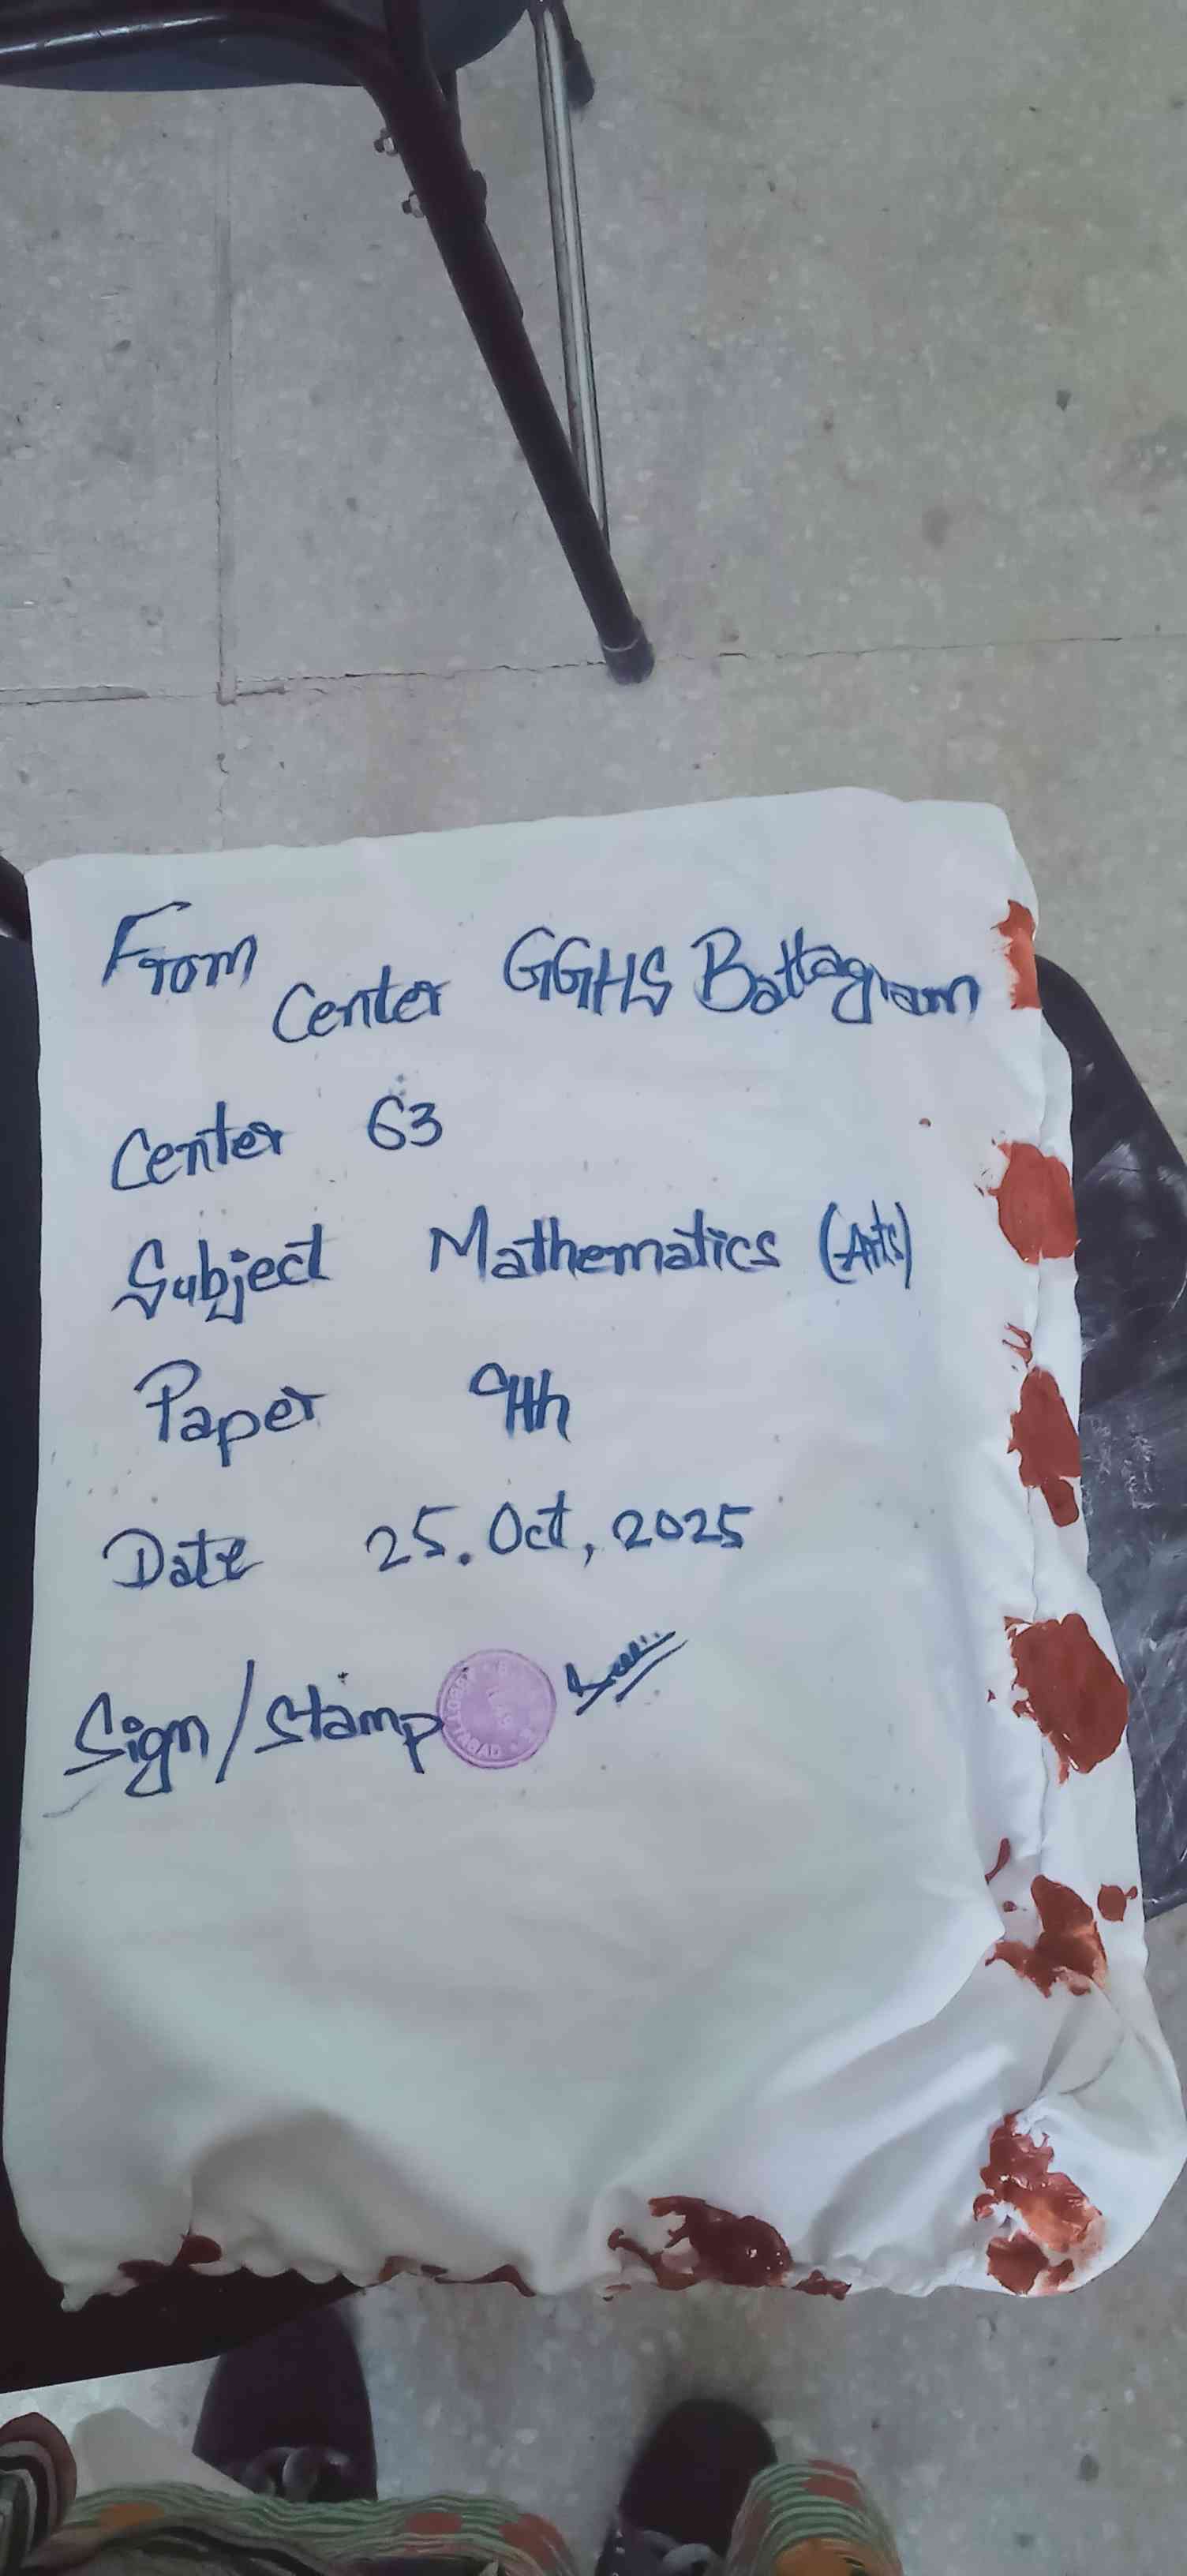 From
Center GGHS Battagram
Center 63
Subject Mathematics (Arts)
Paper 9th
Date 25. Oct, 2025
Sign/Stamp
ABBOTTABAD